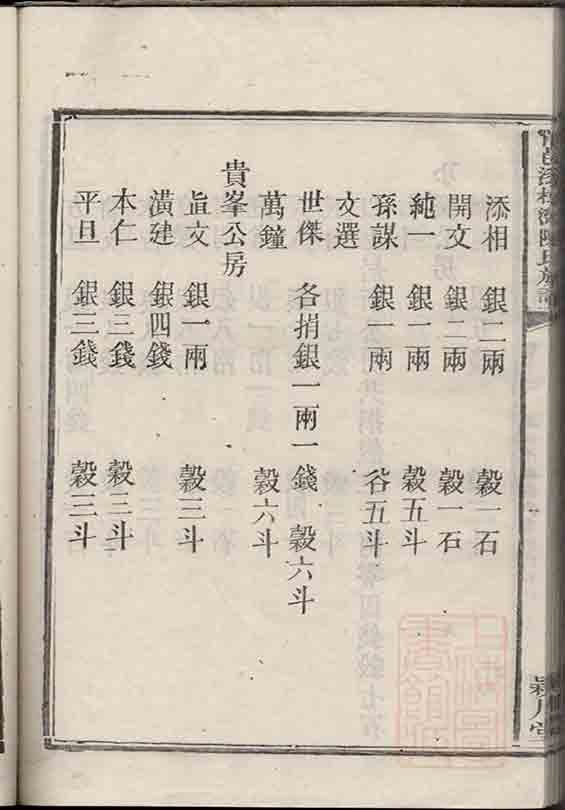 添相 銀二兩 穀一石
開文 銀二兩 穀一石
純一 銀一兩 穀五斗
孫謀 銀一兩 谷五斗
文選
世傑 各捐銀一兩一錢 穀六斗
萬鐘 穀六斗
貴峯公房
直文 銀一兩 穀三斗
潢建 銀四錢
本仁 銀三錢 穀三斗
平旦 銀三錢 穀三斗
陳氏族譜
潁川堂